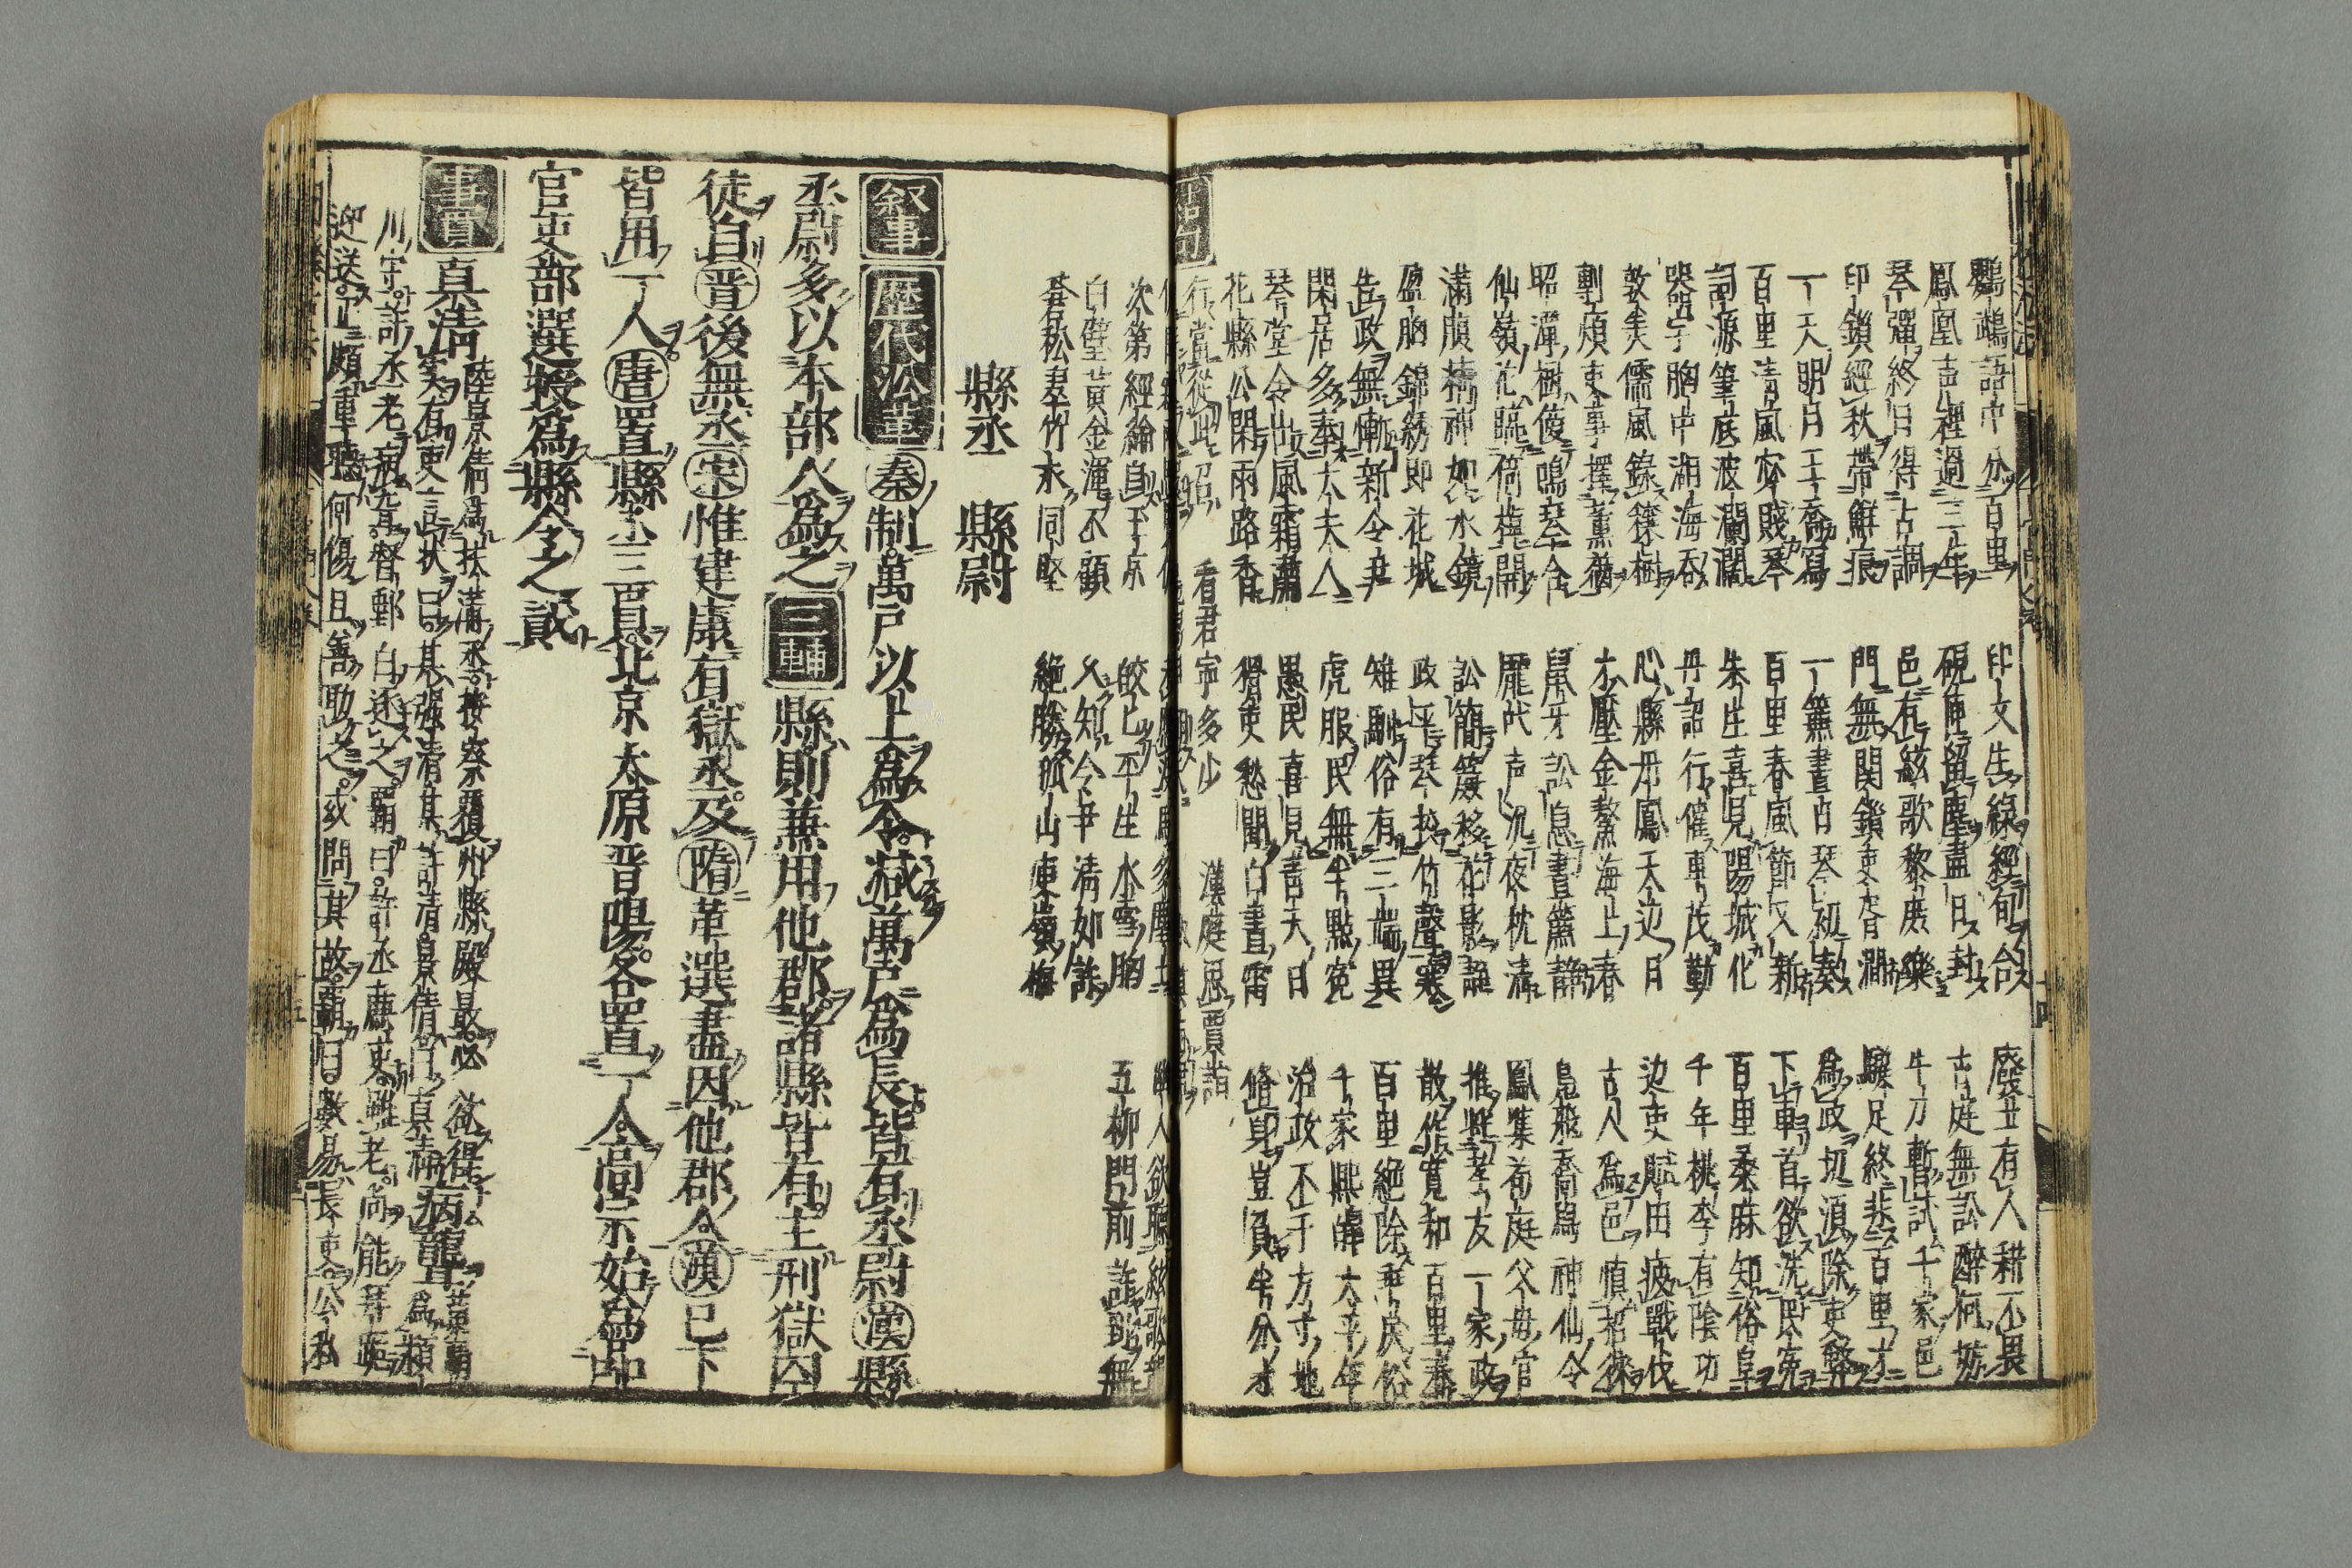 鸚鵡語中分百里
印文生綠經旬合
廢丑有人耕不畏
鳳凰声裡過三年
硯匣留塵盡日封
古庭無訟醉何妨
琴彈終日得古調
邑有絃歌黎庶樂
牛刀暫試千家邑
印鎖經秋帶鮮痕
門無関鎖吏胥
驥足終非百里才
一天明月王喬舄
一簾晝古琴初奏
爲政切湏除吏弊
百里清風宓賤琴
百里春風節又新
下車首欲洗民寃
詞源筆底波瀾濶
朱生喜見陽城化
百里桑麻知俗阜
器宇胸中湖海呑
丹詔行催車茂勤
千年桃李有陰功
敦矣儒風錄
心縣丹鳳天辺月
边吏賦田疲戰伐
剸煩吏事擇薰蕕
才壓金鰲海上春
古人爲邑慎招徠
昭潭樹後鳴琴舎
鼠牙訟息晝簾静
鳧飛喬舄神仙令
仙嶺花臨倚棹開
厖吠声沉夜枕清
鳳集荀庭父毋官
滿腹精神如水鏡
訟簡簾移花影
推孝友一家政
盈胸錦綉即花城
政平琴

竹聲寒
散作寛和百里春
告政無慚新令尹
雉馴俗有三端異
百里絶除戾俗
閑居多奉大夫人
虎服民無半點寃
千家熙皥大平年
琴堂令出風霜肅
愚民喜見青天日
治政不于方寸地
花縣公閑雨路香
猾吏愁聞白晝霄
脩身豈負半分才
行當從此召
看君寧多少
漢庭思賈誼
次第經綸自于京
皎乚平生水雪胸
五柳門前
白璧黄金渾不顧
父知今尹清如許
蒼松翠竹永同堅
絶勝孤山東嶺梅
縣丞　縣尉
叙事 歴代沿革 秦制萬戸以上爲令减萬戸爲長皆有丞尉漢縣
丞尉多以本部人爲之三輔縣則兼用他郡諸縣皆有主刑獄囚
徒自晋後無丞宋惟建康有獄丞及隋革選盡因他郡人漢已下
皆用一人唐置縣丞三員北京太原晋陽各置一人高宗始爲
官吏部選授爲縣令之貳
事實 真清 陸景倩爲扶溝丞按察覆州縣殿最必欲得
實有吏言狀曰某强清某詐清景倩曰真清 病聾 黄霸爲穎
川守許丞老病聾督郵白逐之霸曰許丞廉吏雖老尚能拜起
迎送正頗重聽何傷且善助之或問其故霸曰數易長吏公私